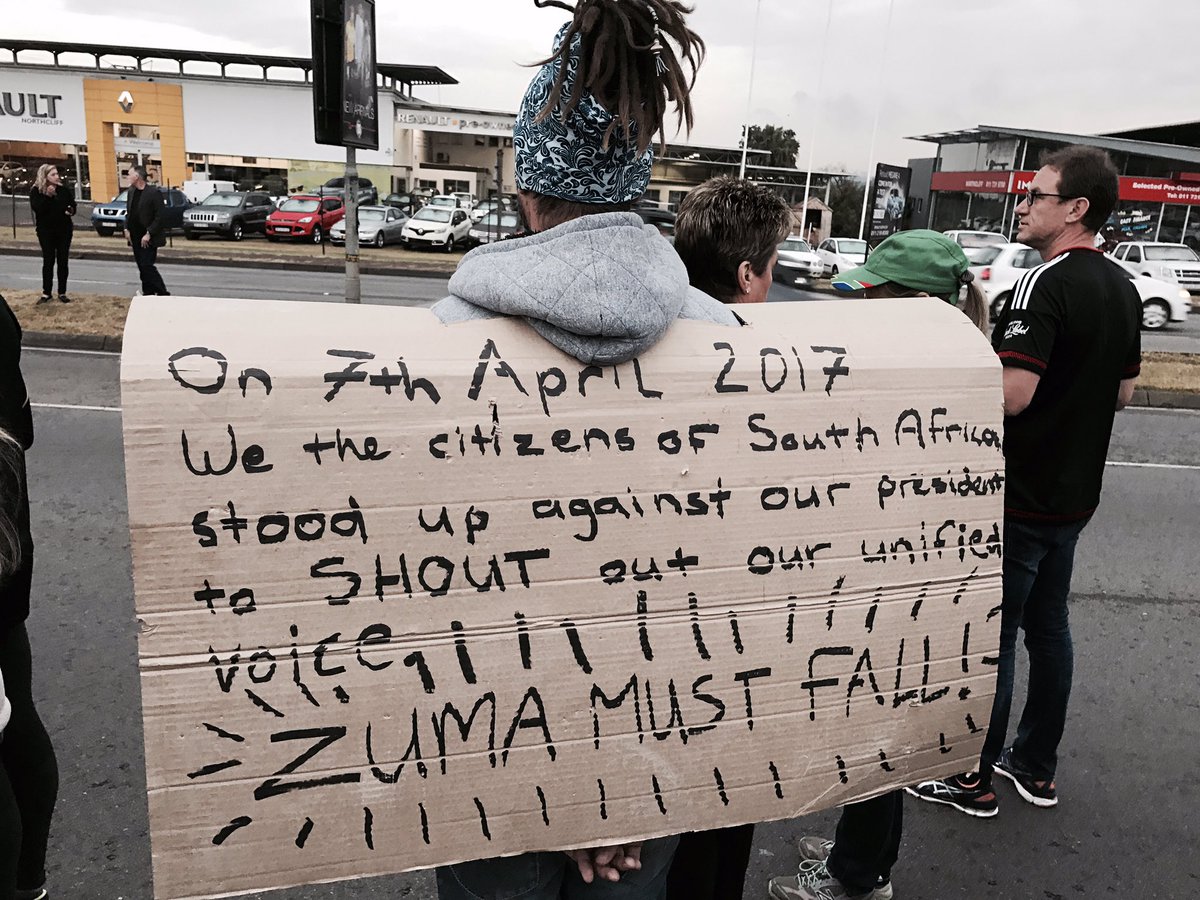 AULT
NORTHCLIFF
NEW ARRIVALS
RENAULT pre-owned
NORTHCLIFF
Selected Pre-Owned
On 7th April 2017
We the citizens of South Africa
stood up against our president
to SHOUT out our unified
voice,
ZUMA MUST FALL!